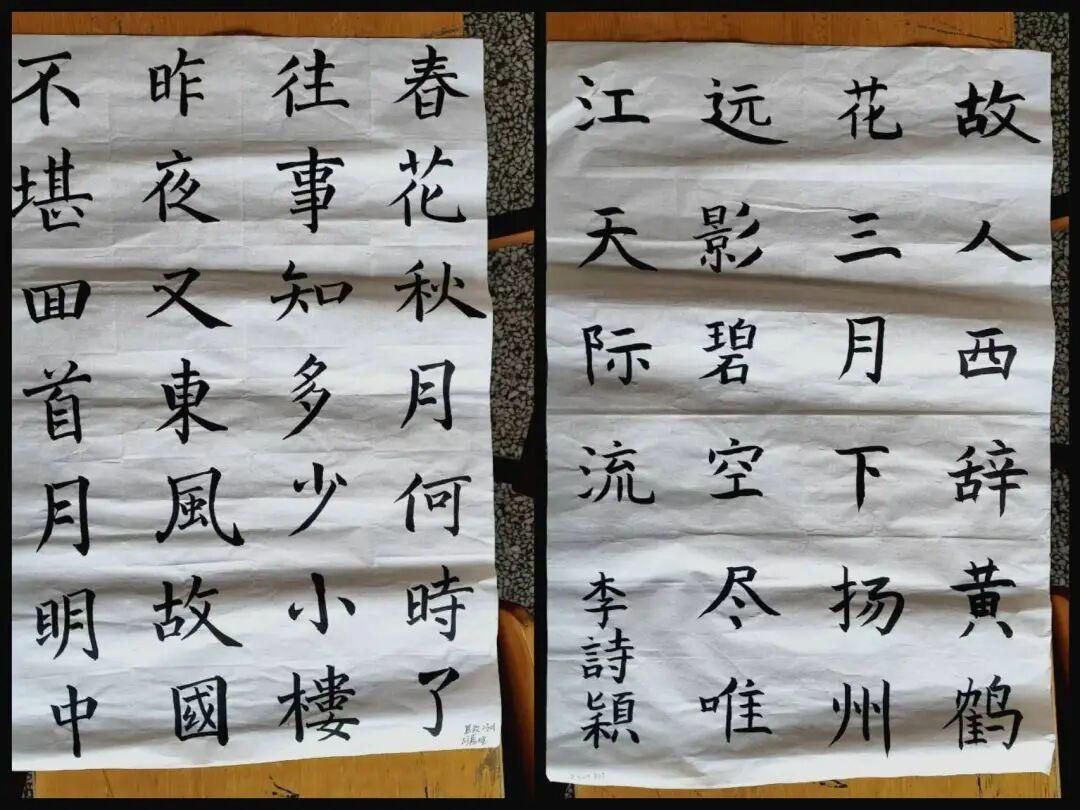 春花秋月何時了
往事知多少小樓
昨夜又東風故國
不堪回首月明中
故人西辞黄鹤
花三月下扬州
远影碧空尽唯
江天际流
李詩穎